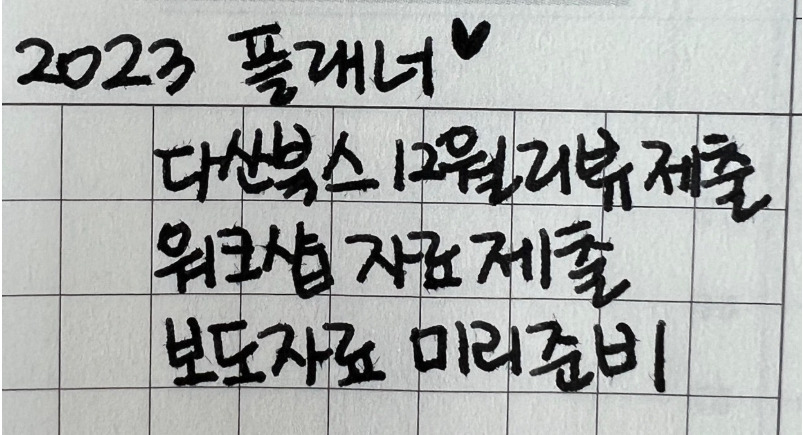 2023 플래너♥
다산북스 12월 리뷰 제출
워크샵 자료 제출
보도자료 미리준비